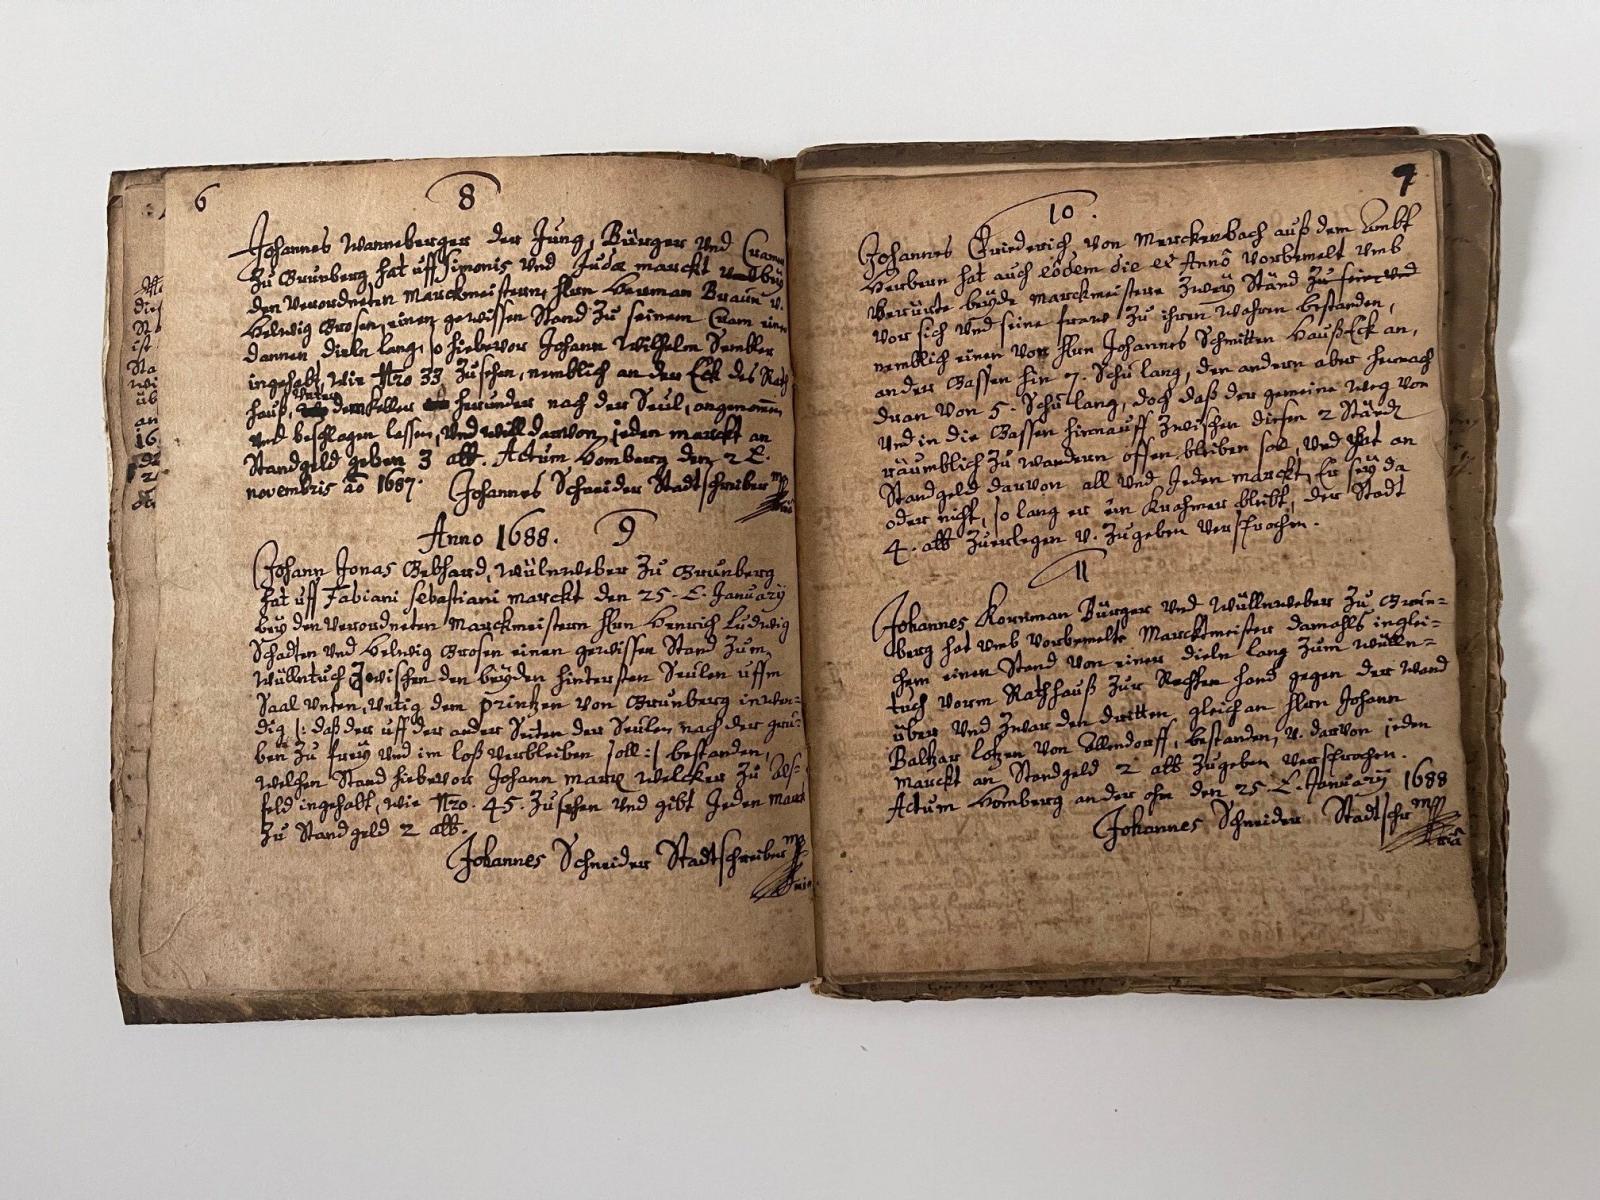 6
8
Johannes Wanneberger der Jung, Bürger und Cramer
Zu Grünberg hat uff Simonis und Judæ marckt bey
den verordneten Marckmeistern, Hrn Herman Braun v.
Helwig Grosen, einen gewissen Stand Zu seinem Cram einer
dannen dieln lang, so hiebevor Johann Wilhelm Sembler
ingehabt, wie Nro 33 Zusehen, nemblich an der Eck des Rath
hauß, unter dem Keller herunder nach der Seul, angenommen
und beschlagen lassen, und will darvon jeden marckt an
Standgeld geben 3 alb. Actum Homberg den 2 t.
novembris ao 1687.
Johannes Schneider Stadtschreiber mp
Anno 1688. 9
Johann Jonas Gebhard, Wüllnweber Zu Grünberg
hat uff Fabiani Sebastiani marckt den 25. t. January
bey den verordneten Marckmeistern Hrn Henrich Ludwig
Schadten und Helwig Grosen einen gewissen Stand Zum
Wüllntuch Zwischen den beyden hintersten Seulen uffm
Saal unten, dem printzen von Grünberg inwen-
dig /: daß der uff der ander Seiten der Seulen nach der gra-
ben Zu frey und im loß verbleiben soll :/ bestanden,
welchen Stand hiebevor Johann Marx Welcker Zu Als-
feld ingehabt, wie Nro. 45. Zusehen und gibt Jeden marckt
Zu Standgeld 2 alb.
Johannes Schneider Stadtschreiber mp
7
10.
Johannes Friederich von Merckenbach auß dem Ambt
Herborn hat auch eodem die et Anno vorbemelt umb
berürte beyde Marckmeistere Zwey Ständ
vor sich und seine fraw Zu ihren wahren bestanden,
nemblich einen von Hrn Johannes Schmitten Hauß Eck an,
an der Gassen hin 7. Schu lang, den andern aber hernach
dran von 5. Schu lang, doch daß der gemeine weg von
und in die Gassen hinauff Zwischen diesen 2 Ständ
räumblich Zu wandern offen bleiben sol, und hat an
Standgeld darvon all und Jeden marckt, Er sey da
oder nicht, so lang er ein Krahmer bleibt, der Stadt
4. alb Zuerlegen v. Zugeben versprochen.
11
Johannes Kornman Bürger und Wüllnweber Zu Grün-
berg hat umb vorbemelte Marcktmeister damahls inglei-
chem einen Stand von einer dieln lang Zum wülln-
tuch vorm Rathhauß Zur Rechten hand gegen der wand
über und Zwar den dritten gleich an Hrn Johann
Baltzar Lotzen von Allendorff, bestanden, v. darvon jeden
Marckt an Standgeld 2 alb Zugeben versprochen.
Actum Homberg an der ohm den 25. t. January 1688
Johannes Schneider Stadtschr mp